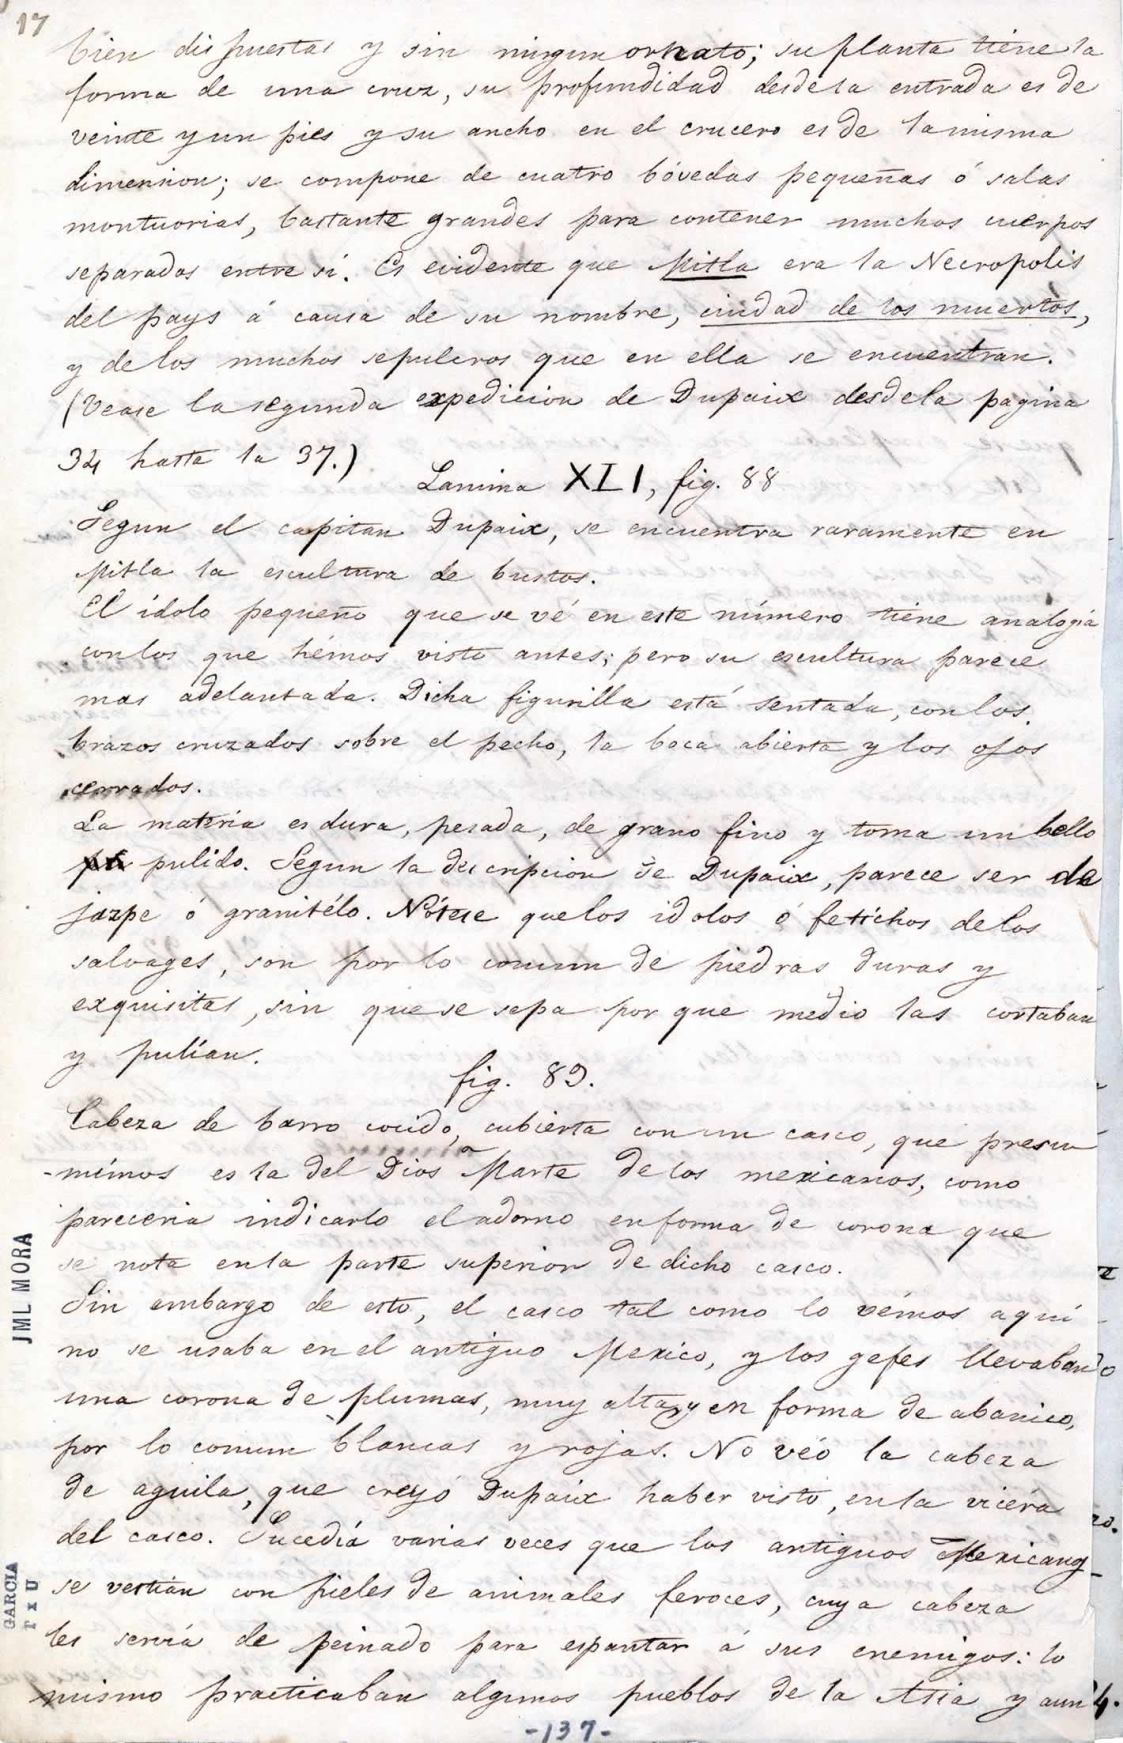 17
bien dispuestas y sin ningun ornato; su planta tiene la
forma de una cruz, su profundidad desde la entrada es de
veinte y un pies y su ancho en el crucero es de la misma
dimension; se compone de cuatro bóvedas pequeñas ó salas
montuorias, bastante grandes para contener muchos cuerpos
separados entre sí. Es evidente que Mitla era la Necropolis
del pays á causa de su nombre, ciudad de los muertos,
y de los muchos sepulcros que en ella se encuentran.
(Vease la segunda expedicion de Dupaix desde la pagina
34 hasta la 37.)
Lamina XLI, fig. 88
Segun el capitan Dupaix, se encuentra raramente en
Mitla la escultura de bustos.
El ídolo pequeño que se vé en este número tiene analogía
con los que hémos visto antes; pero su escultura parece
mas adelantada. Dicha figurilla está sentada, con los
brazos cruzados sobre el pecho, la boca abierta y los ojos
cerrados.
La materia es dura, pesada, de grano fino y toma un bello
pulido. Segun la descripcion de Dupaix, parece ser de
jaspe ó granitélo. Nótese que los idolos ó fetichos de los
salvages, son por lo comun de piedras duras y
exquisitas, sin que se sepa por que medio las cortaban
y pulían.
fig. 89.
Cabeza de barro cocido, cubierta con un casco, que presu
-mímos es la del Dios Marte de los mexicanos, como
pareceria indicarlo el adorno en forma de corona que
se nota en la parte superior de dicho casco.
Sin embargo de esto, el casco tal como lo vémos aquí
no se usaba en el antiguo Mexico, y los gefes llevaban
una corona de plumas, muy alta y en forma de abanico,
por lo comun blancas y rojas. No véo la cabeza
de aguila, que creyó Dupaix haber visto, en la vicéra
del casco. Sucedía varias veces que los antiguos Mexicanos
se vestian con pieles de animales feroces, cuya cabeza
les servía de peinado para espantar á sus enemigos: lo
mismo practicaban algunos pueblos de la Asia y aun
-137-
JML MORA
GARCIA